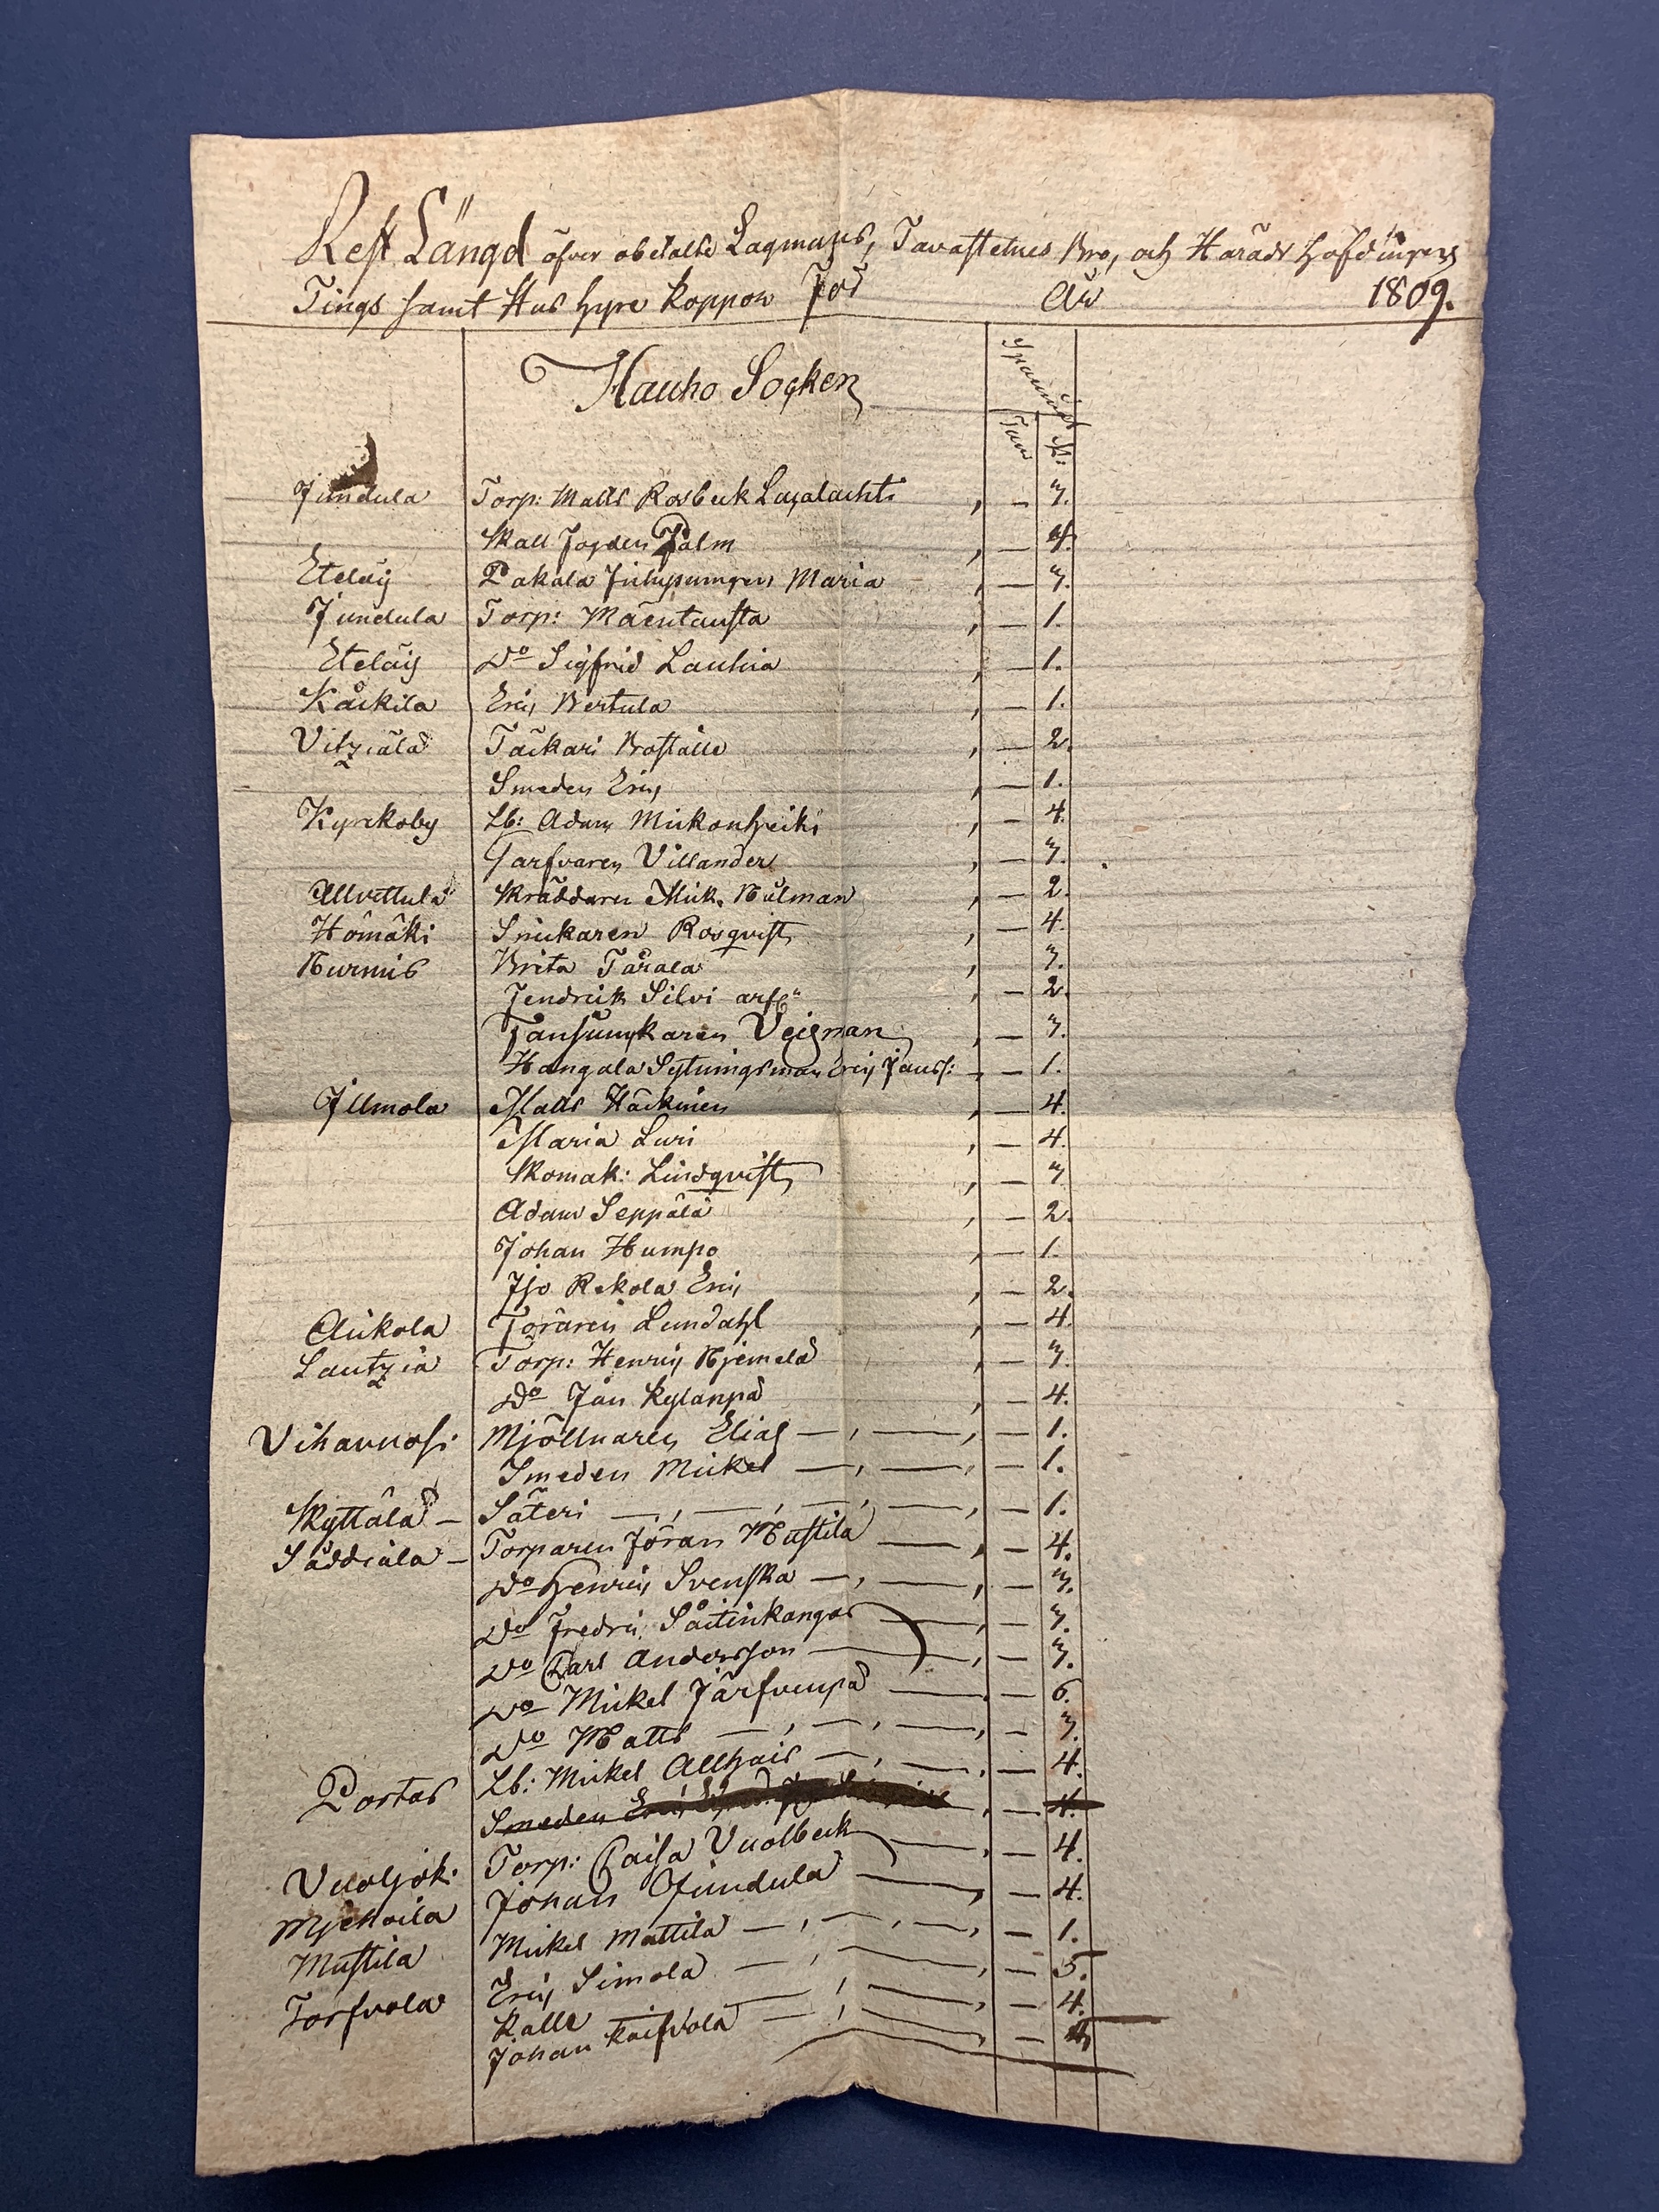 Rest Längd öfver obetalte Lagmans, Tavastehus Bro, och Härads Höfdingens
Tings samt Hus hyre Kappor För År 1809.
Hauho Socken
Spanmål
Tun K:
Jundula Torp: Matts Rosbeck , – 3.
Palm , – 4.
Eteläis Pakala Maria , – 3.
Jundula Torp: Mäentausta , – 1.
Eteläis Do Sigfrid Lauhia , – 1.
Kåckila Eric Bertula , – 1.
Vitziälä Täckari Boställe , – 2.
Smeden Eric , – 1.
Kyrckoby Lb: Adam Mickonheiki , – 4.
Garfvaren Villander , – 3.
Allvettula Skräddaren Mick. Nülman , – 2.
Hömäki Snickaren Rosqvist , – 4.
Nurmis Brita Tårala , – 3.
Hendrick Silvi , – 2.
Veigman , – 3.
Hangala Sytningsman Eric , – 1.
Illmola Matts Häckinen , – 4.
Maria Luri , – 4.
Skomak: Lindqvist , – 3
Adam Seppälä , – 2.
Johan Humpo , – 1.
Iso Rekola Eric , – 2.
Aickola Lundahl , – 4.
Lautzia Torp: Henric Njemelä , – 3.
Do Jan Kylänpä , – 4.
Vihavuosi Mjöllnaren Elias – , – , – 1.
Smeden Mickel – , – , – 1.
Skyttälä – Säteri – , – , – , – , – 1.
Säddiälä – Torparen Jöran Mustila – , – 4.
Do Henric Svenska – , – , – 3.
Do Fredric – , – 3.
Do Carl Andersson – , – 3.
Do Mickel Järfvenpä – , – 6.
Do Matts – , – , – , – 3.
Portas Lb: Mickel Allhais – , – , – 4.
Smeden Eric , – 4.
Vuoljoki Torp: Caisa Vuolbeck – , – 4.
Johan Jundula – , – 4.
Mustila Mickel Mattila – , – , – , – 1.
Torfvola Eric Simola – , – , – 5.
Kalle – , – , – 4.
Johan – , – , –